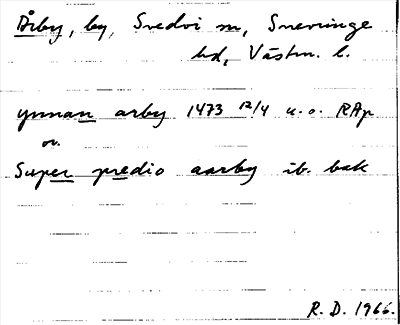 Årby, by, Svedvi sn, Snevringe
hd, Västm. l.
ynnan arby 1473 12/4 u. o. RAp
or.
Super predio aarby ib. bak
R. D. 1966.